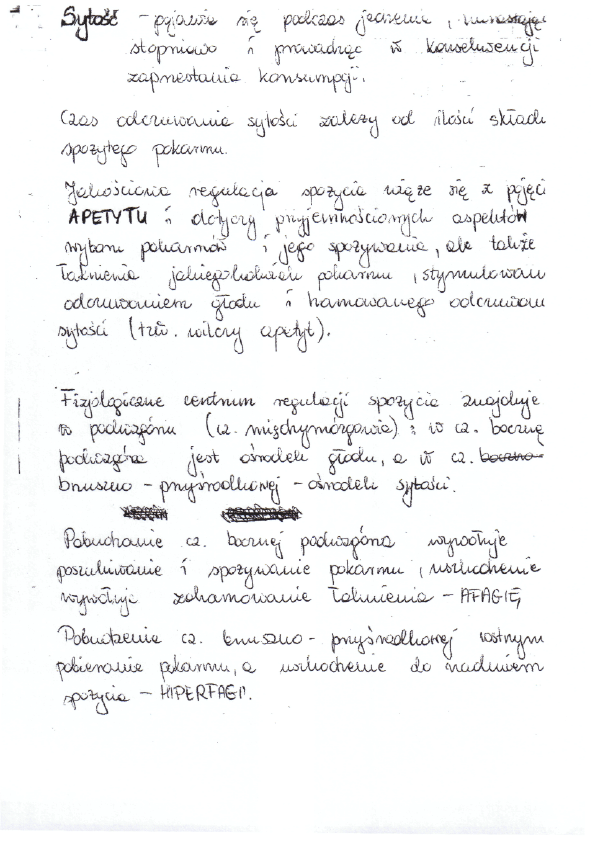 Sytość - pojawia się podczas jedzenia, narastając
stopniowo i prowadząc w konsekwencji
zaprzestania konsumpcji.
Czas odczuwania sytości zależy od ilości składu
spożytego pokarmu.
Jakościowa regulacja spożycia wiąże się z pojęci
APETYTU i dotyczy przyjemnościowych aspektów
wyboru pokarmów i jego spożywania, ale także
łaknienia jakiegokolwiek pokarmu, stymulowan
odczuwaniem głodu i hamowanego odczuwan
sytości (tzw. wilczy apetyt).
Fizjologiczne centrum regulacji spożycia znajduje
w podwzgórzu (cz. międzymózgowia) : w cz. bocznej
podwzgórza jest ośrodek głodu, a w cz.
brzuszno - przyśrodkowej - ośrodek sytości.
Pobudzanie cz. bocznej podwzgórza wywołuje
poszukiwanie i spożywanie pokarmu, uszkodzenie
wywołuje zahamowanie łaknienia - AFAGIĘ
Pobudzenie cz. brzuszno - przyśrodkowej wstrzym
pobieranie pokarmu, a uszkodzenie do nadmiern
spożycia - HIPERFAGII.